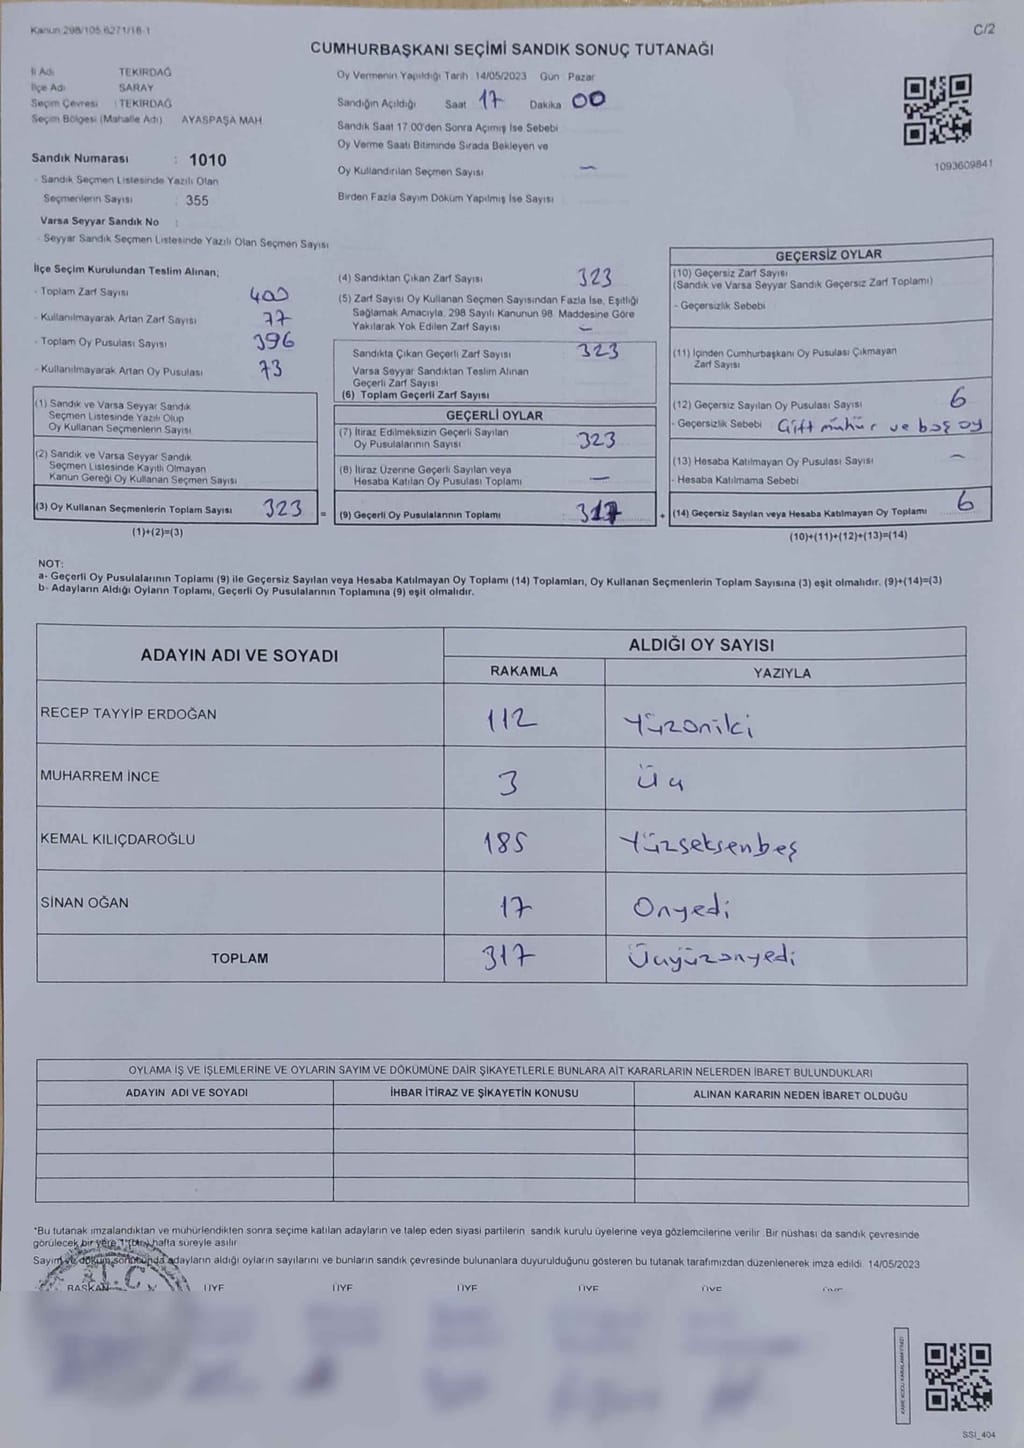 Kanun 298/105 6271/18-1
C/2
CUMHURBAŞKANI SEÇİMİ SANDIK SONUÇ TUTANAĞI
İl Adı : TEKİRDAĞ
İlçe Adı : SARAY
Seçim Çevresi : TEKİRDAĞ
Seçim Bölgesi (Mahalle Adı) AYASPAŞA MAH.
Sandık Numarası : 1010
- Sandık Seçmen Listesinde Yazılı Olan
Seçmenlerin Sayısı : 355
Varsa Seyyar Sandık No :
- Seyyar Sandık Seçmen Listesinde Yazılı Olan Seçmen Sayısı
Oy Vermenin Yapıldığı Tarih : 14/05/2023 Gün Pazar
Sandığın Açıldığı Saat 17 Dakika 00
Sandık Saat 17:00'den Sonra Açımış İse Sebebi
Oy Verme Saati Bitiminde Sırada Bekleyen ve
Oy Kullandırılan Seçmen Sayısı —
Birden Fazla Sayım Döküm Yapılmış İse Sayısı
1093609841
İlçe Seçim Kurulundan Teslim Alınan;
- Toplam Zarf Sayısı 400
- Kullanılmayarak Artan Zarf Sayısı 77
- Toplam Oy Pusulası Sayısı 396
- Kullanılmayarak Artan Oy Pusulası 73
(1) Sandık ve Varsa Seyyar Sandık
Seçmen Listesinde Yazılı Olup
Oy Kullanan Seçmenlerin Sayısı
(2) Sandık ve Varsa Seyyar Sandık
Seçmen Listesinde Kayıtlı Olmayan
Kanun Gereği Oy Kullanan Seçmen Sayısı
(3) Oy Kullanan Seçmenlerin Toplam Sayısı 323 =
(1)+(2)=(3)
(4) Sandıktan Çıkan Zarf Sayısı 323
(5) Zarf Sayısı Oy Kullanan Seçmen Sayısından Fazla İse, Eşitliği
Sağlamak Amacıyla, 298 Sayılı Kanunun 98. Maddesine Göre
Yakılarak Yok Edilen Zarf Sayısı —
Sandıkta Çıkan Geçerli Zarf Sayısı 323
Varsa Seyyar Sandıktan Teslim Alınan
Geçerli Zarf Sayısı
(6) Toplam Geçerli Zarf Sayısı
GEÇERLİ OYLAR
(7) İtiraz Edilmeksizin Geçerli Sayılan
Oy Pusulalarının Sayısı 323
(8) İtiraz Üzerine Geçerli Sayılan veya
Hesaba Katılan Oy Pusulası Toplamı —
(9) Geçerli Oy Pusulalarının Toplamı 317 +
GEÇERSİZ OYLAR
(10) Geçersiz Zarf Sayısı
(Sandık ve Varsa Seyyar Sandık Geçersiz Zarf Toplamı)
- Geçersizlik Sebebi
(11) İçinden Cumhurbaşkanı Oy Pusulası Çıkmayan
Zarf Sayısı
(12) Geçersiz Sayılan Oy Pusulası Sayısı 6
- Geçersizlik Sebebi Çift mühür ve boş oy
(13) Hesaba Katılmayan Oy Pusulası Sayısı —
- Hesaba Katılmama Sebebi
(14) Geçersiz Sayılan veya Hesaba Katılmayan Oy Toplamı 6
(10)+(11)+(12)+(13)=(14)
NOT:
a- Geçerli Oy Pusulalarının Toplamı (9) ile Geçersiz Sayılan veya Hesaba Katılmayan Oy Toplamı (14) Toplamları, Oy Kullanan Seçmenlerin Toplam Sayısına (3) eşit olmalıdır. (9)+(14)=(3)
b- Adayların Aldığı Oyların Toplamı, Geçerli Oy Pusulalarının Toplamına (9) eşit olmalıdır.
ADAYIN ADI VE SOYADI ALDIĞI OY SAYISI
RAKAMLA YAZIYLA
RECEP TAYYİP ERDOĞAN 112 Yüzoniki
MUHARREM İNCE 3 Üç
KEMAL KILIÇDAROĞLU 185 Yüzseksenbeş
SİNAN OĞAN 17 Onyedi
TOPLAM 317 Üçyüzonyedi
OYLAMA İŞ VE İŞLEMLERİNE VE OYLARIN SAYIM VE DÖKÜMÜNE DAİR ŞİKAYETLERLE BUNLARA AİT KARARLARIN NELERDEN İBARET BULUNDUKLARI
ADAYIN ADI VE SOYADI İHBAR İTİRAZ VE ŞİKAYETİN KONUSU ALINAN KARARIN NEDEN İBARET OLDUĞU
*Bu tutanak imzalandıktan ve mühürlendikten sonra seçime katılan adayların ve talep eden siyasi partilerin sandık kurulu üyelerine veya gözlemcilerine verilir. Bir nüshası da sandık çevresinde
görülecek bir yere 1 (bir) hafta süreyle asılır.
Sayım ve döküm sonucunda adayların aldığı oyların sayılarını ve bunların sandık çevresinde bulunanlara duyurulduğunu gösteren bu tutanak tarafımızdan düzenlenerek imza edildi. 14/05/2023
T.C.
BAŞKAN ÜYE ÜYE ÜYE ÜYE ÜYE ÜYE
SSI_404